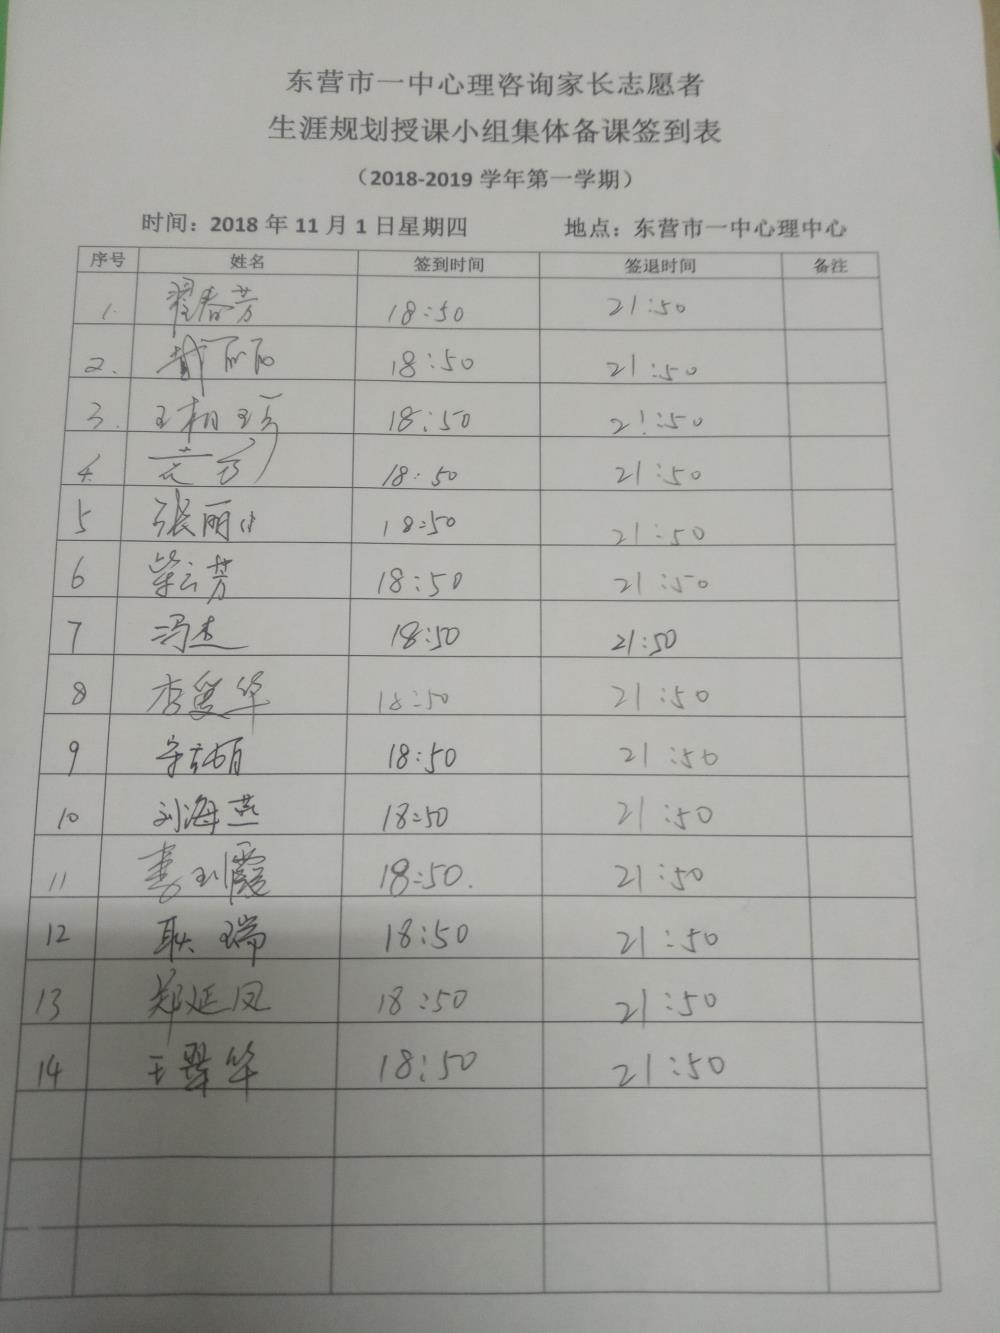 东营市一中心理咨询家长志愿者
生涯规划授课小组集体备课签到表
（2018-2019 学年第一学期）
时间：2018 年 11 月 1 日星期四 地点：东营市一中心理中心
序号 姓名 签到时间 签退时间 备注
1. 翟春芳 18:50 21:50
2. 戴丽丽 18:50 21:50
3. 王相玲 18:50 21:50
4. 18:50 21:50
5 张丽 18:50 21:50
6 柴云芳 18:50 21:50
7 冯杰 18:50 21:50
8 李爱华 18:50 21:50
9 18:50 21:50
10 刘海燕 18:50 21:50
11 李玉霞 18:50. 21:50
12 耿瑞 18:50 21:50
13 郑延凤 18:50 21:50
14 王翠华 18:50 21:50